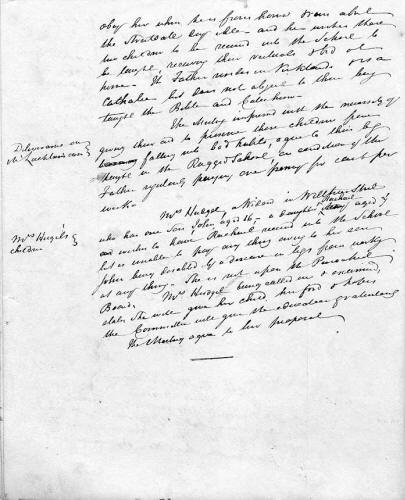 obey her when he is from home
the
children to be received into the School to
be taught, receiving their victuals &
home. The Father works in Kirkland is a
Catholic but does not object to their being
taught the Bible and Catechism.
The Meeting impressed with the necessity of
Deliverance on
giving their aid to preserve these children from
falling into bad habits, agree to their being
taught in the Ragged School, on condition of the
Father regularly paying one penny for each per
week.
Mrs
children
Mrs a Widow in Street
who has one Son John aged 16, a daughter Rachael aged 7
and wishes to have Rachael received into the School
but is unable to pay any thing owing to her son
John being disabled by a disease in legs from working
at any thing. She is not upon the Parochial
Board. Mrs being called in & examined,
states she will give her child her food & clothes
the Committee will give the education gratuitously
The Meeting agree to her proposal